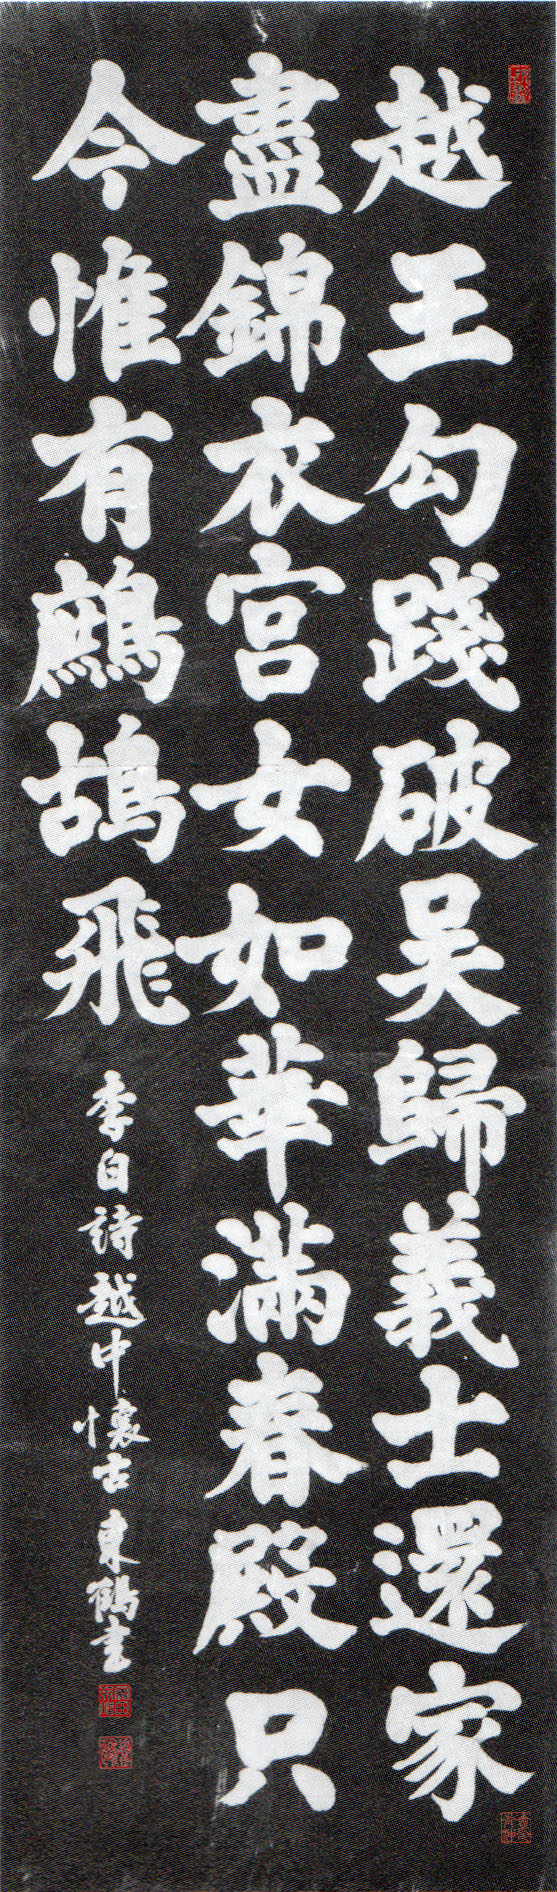 越王勾踐破吴歸義士還家
盡錦衣宫女如華滿春殿只
今惟有鷓鴣飛
李白詩越中懷古東鶴書